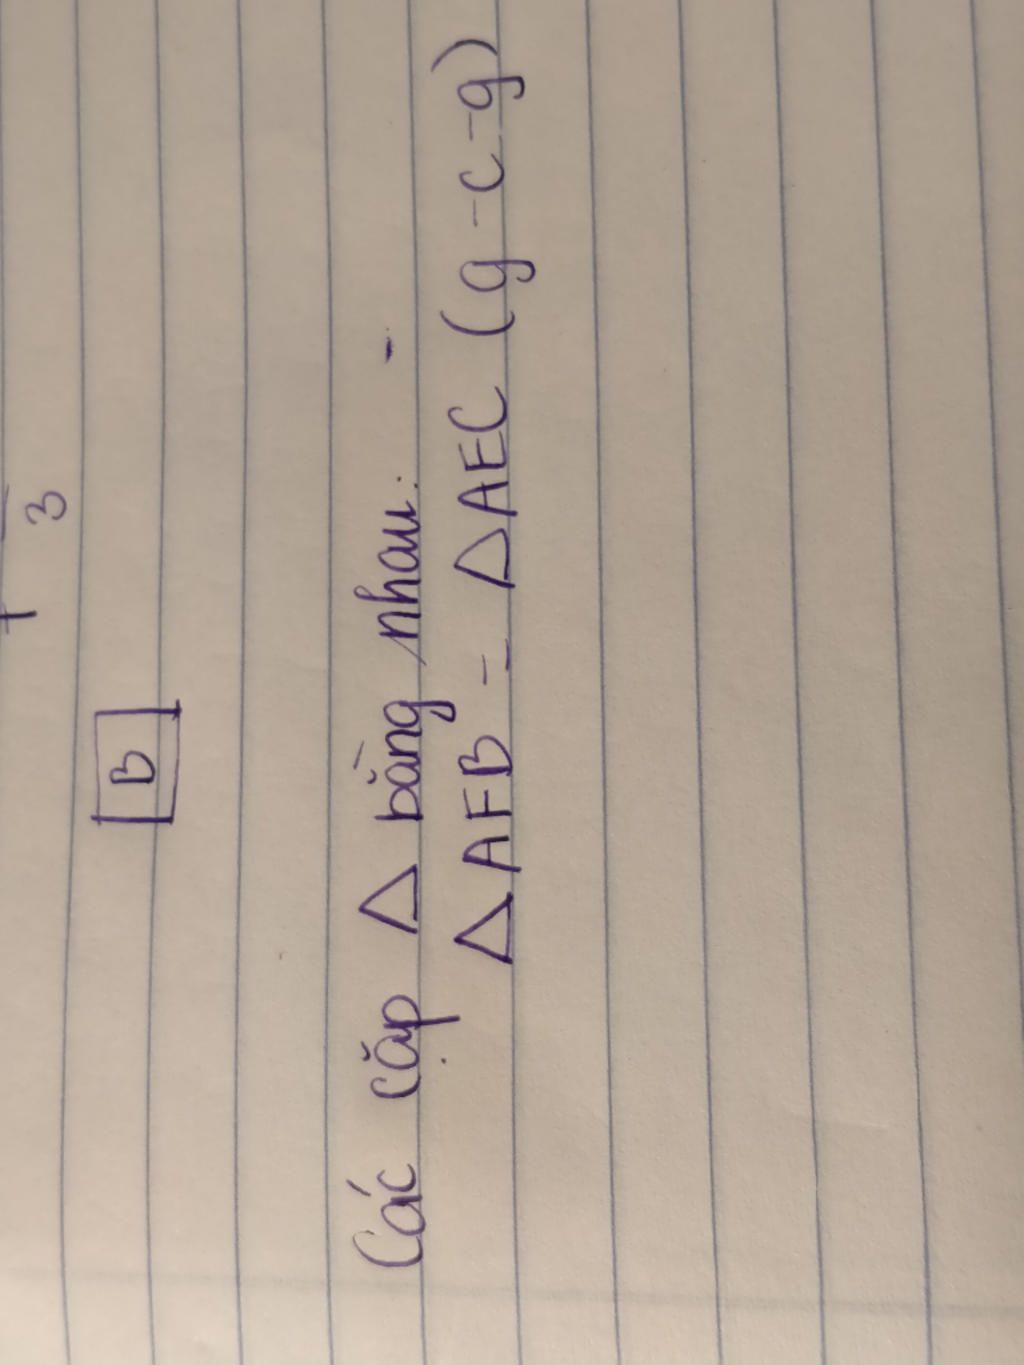 3
B
Các cặp △ bằng nhau:
△AFB = △AEC (g-c-g)